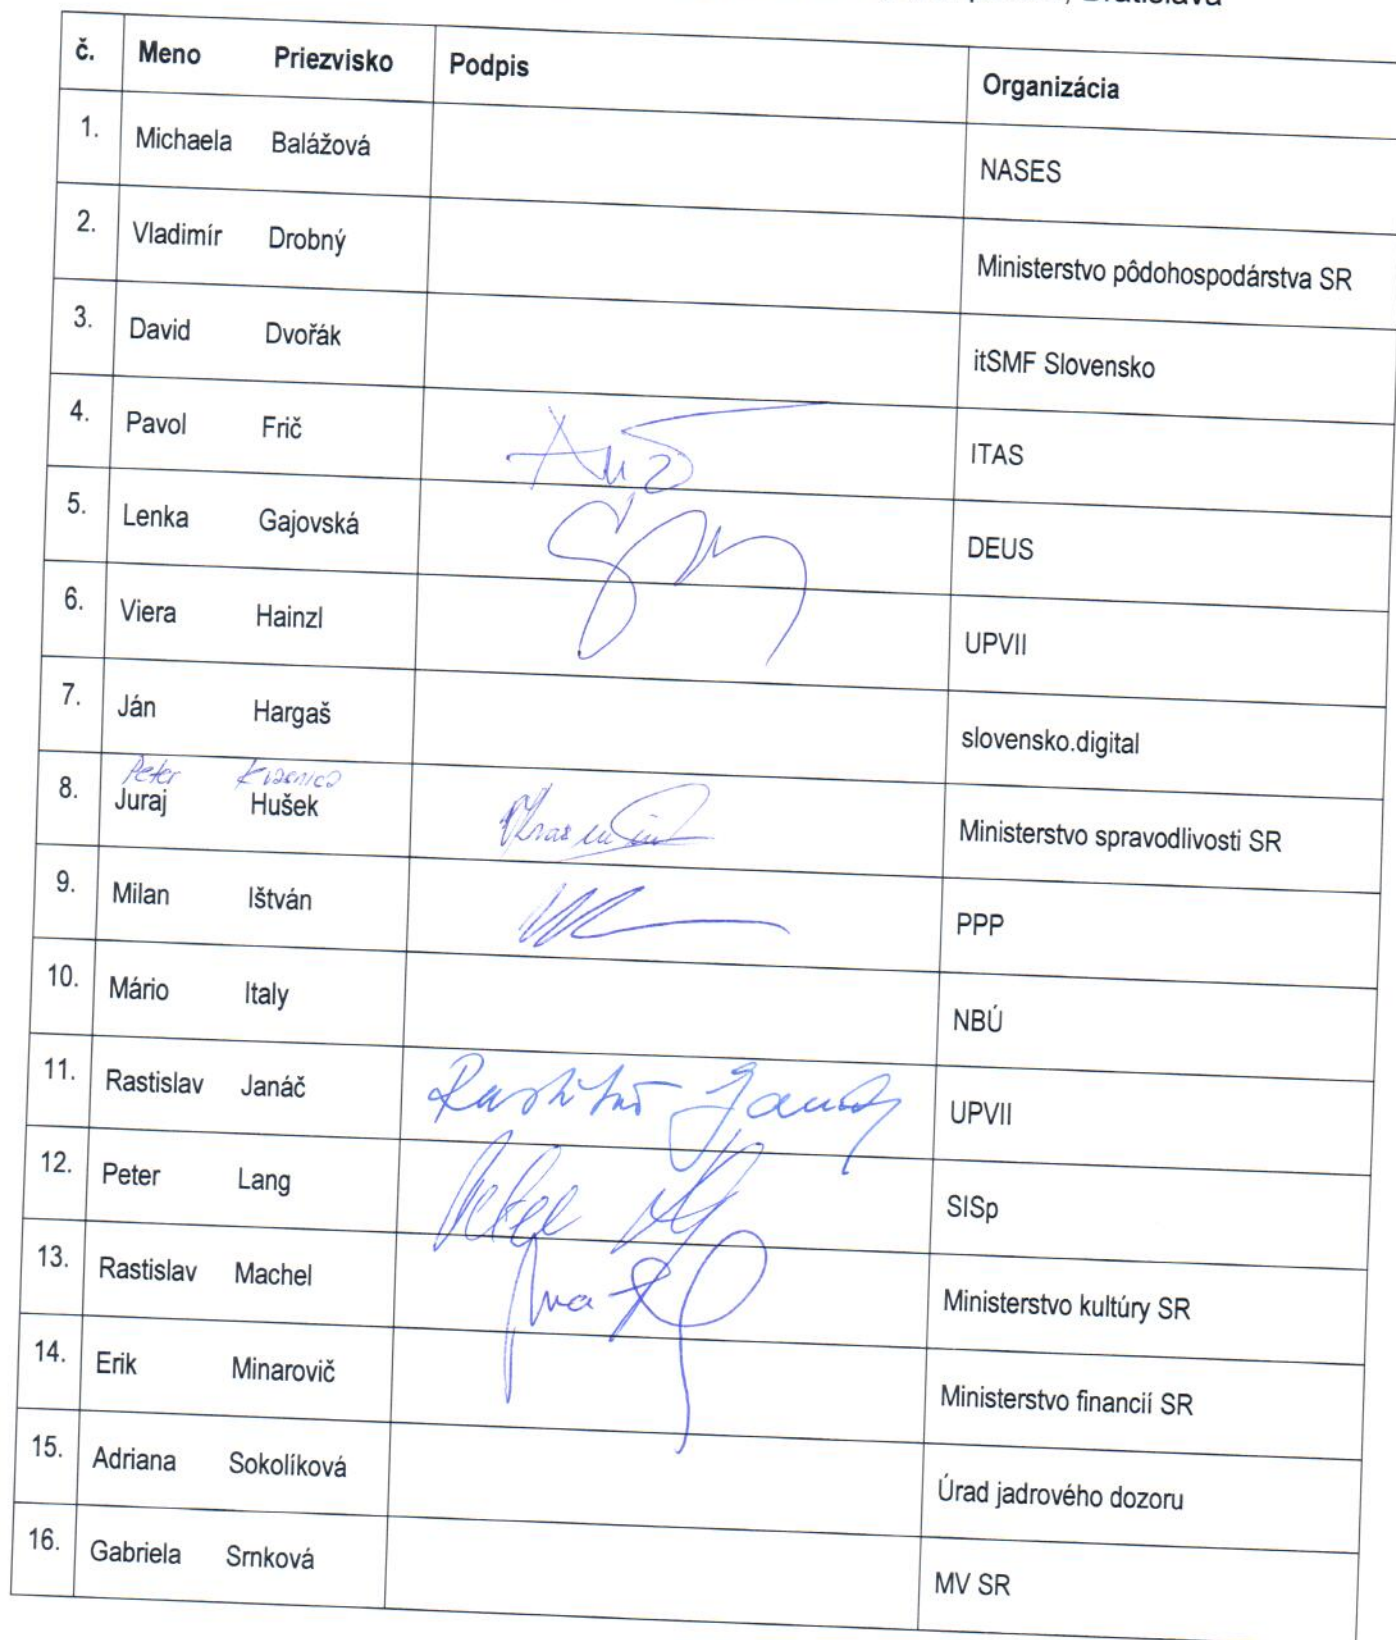 Bratislava
č. Meno Priezvisko Podpis Organizácia
1. Michaela Balážová NASES
2. Vladimír Drobný Ministerstvo pôdohospodárstva SR
3. David Dvořák itSMF Slovensko
4. Pavol Frič ITAS
5. Lenka Gajovská DEUS
6. Viera Hainzl UPVII
7. Ján Hargaš slovensko.digital
Peter
8. Juraj Hušek Ministerstvo spravodlivosti SR
9. Milan Ištván PPP
10. Mário Italy NBÚ
11. Rastislav Janáč UPVII
12. Peter Lang SISp
13. Rastislav Machel Ministerstvo kultúry SR
14. Erik Minarovič Ministerstvo financií SR
15. Adriana Sokolíková Úrad jadrového dozoru
16. Gabriela Srnková MV SR